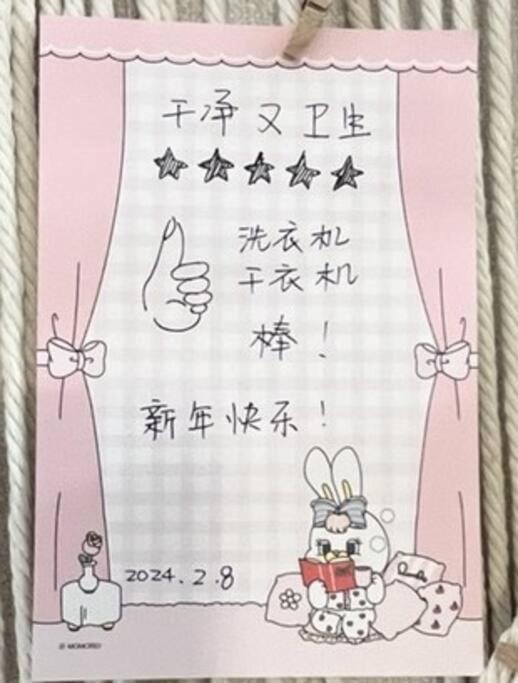 干净又卫生
★★★★★
洗衣机
干衣机
棒！
新年快乐！
2024.2.8